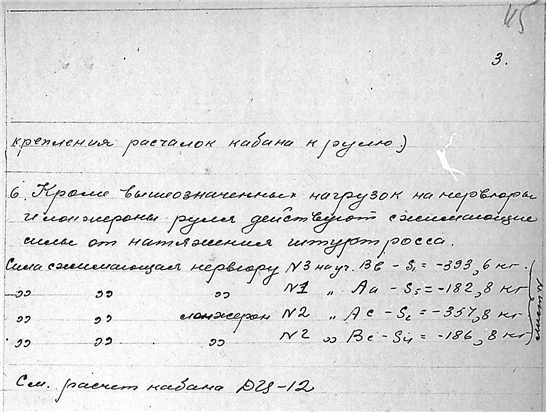 45
3.
крепления расчалок кабана к рулю.)
6. Кроме вышеозначенных нагрузок на нервюры
и лонжероны руля действуют сжимающие
силы от натяжения штуртросса.
Сила сжимающая нервюру N3 на уч. Вв - S₁ = -393,6 кг.
" " " N1 " Аа - S₅ = -182,8 кг
" " лонжерон N2 " Ас - S₂ = -357,8 кг
" " " N2 " Вс - S₄ = -186,8 кг.
См. расчет кабана ДЦ-12